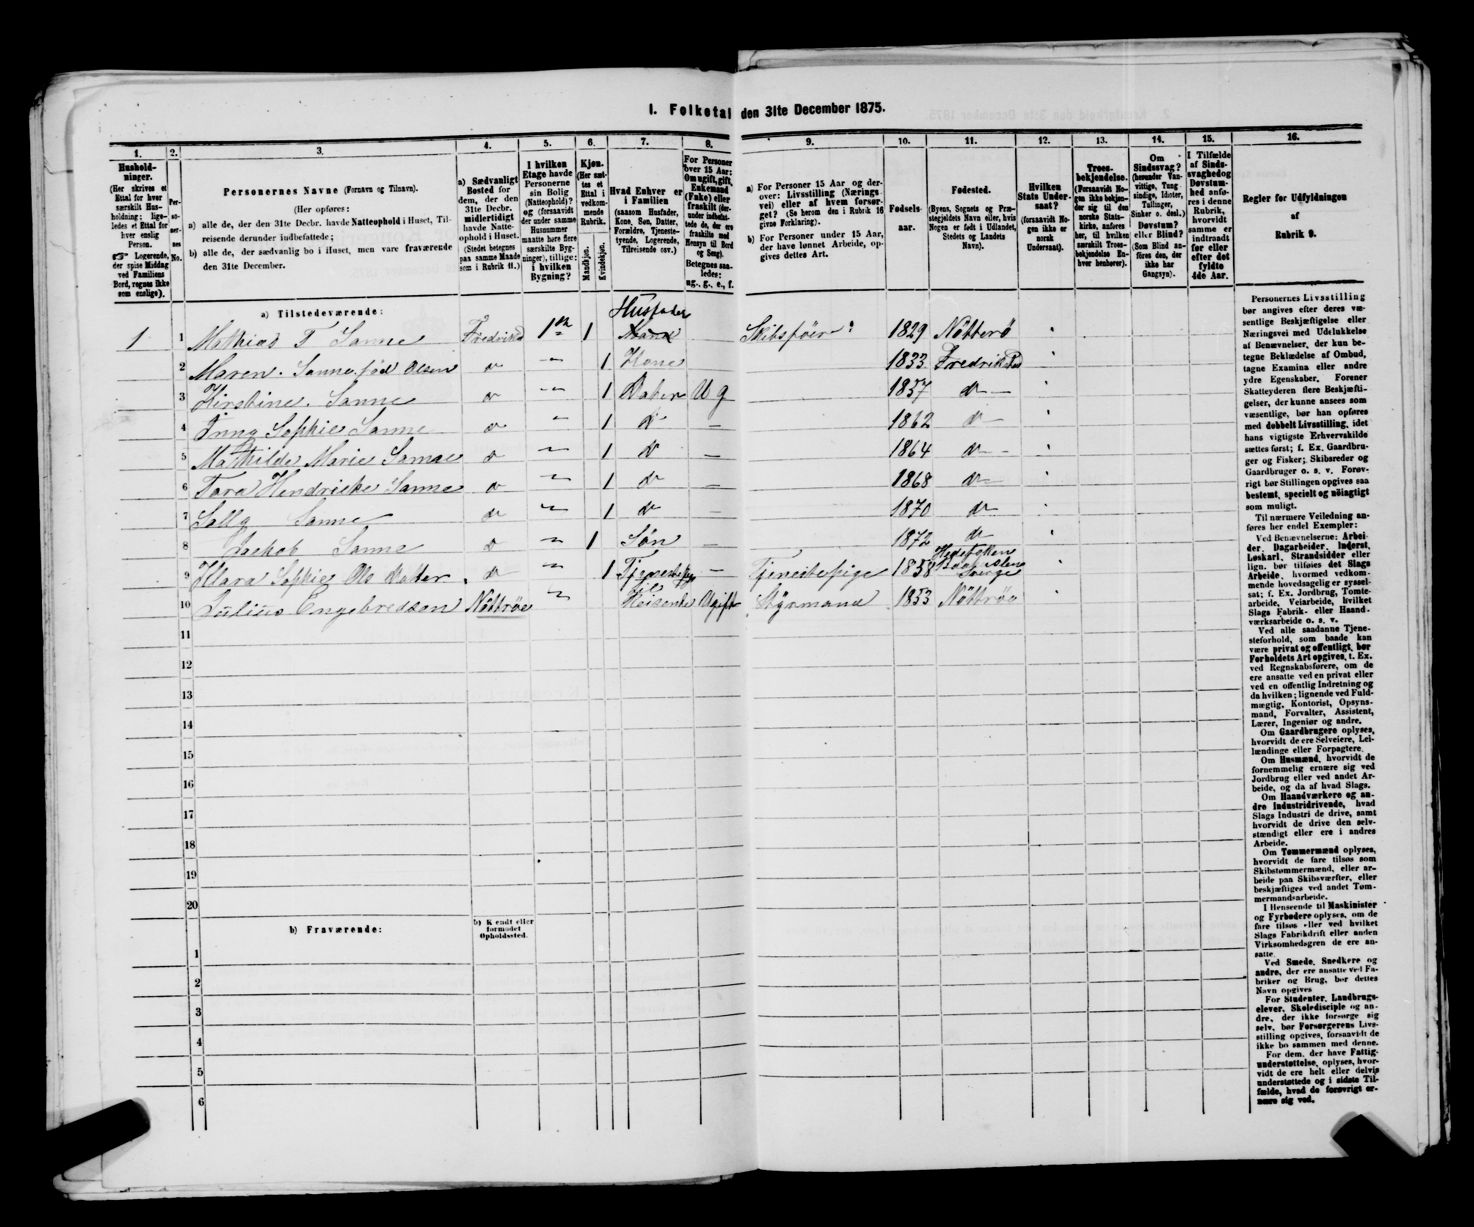 I. Folketal den 31te December 1875.
1. 2. 3. 4. 5. 6. 7. 8. 9. 10. 11. 12. 13. 14. 15. 16.
Hushold-
ninger.
(Her skrives et
Ettal for hver
særskilt Hus-
holdning; lige-
ledes et Ettal for
hver enslig
Person.
Logerende,
der spise Middag
ved Familiens
Bord, regnes ikke
som enslige).
Per-
so-
ner-
nes
No.
Personernes Navne (Fornavn og Tilnavn).
(Her opføres:
a) alle de, der den 31te Decbr. havde Natteophold i Huset, Til-
reisende derunder indbefattede;
b) alle de, der sædvanlig bo i Huset, men vare fraværende
den 31te December.
a) Sædvanligt
Bosted for
dem, der den
31te Decbr.
midlertidigt
havde Natte-
ophold i Huset.
(Stedet betegnes
paa samme Maade
som i Rubrik 11.)
I hvilken
Etage havde
Personerne
sin Bolig
(Natteophold)?
og (forsaavidt
der under samme
Husnummer
maatte høre flere
særskilte Byg-
ninger), tillige:
i hvilken
Bygning?
Kjøn.
(Her sæt-
tes et
Ettal i
vedkom-
mende
Rubrik.
Mandkjøn.
Kvindekjøn.
Hvad Enhver er
i Familien
(saasom Husfader,
Kone, Søn, Datter,
Forældre, Tjeneste-
tyende, Logerende,
Tilreisende osv.)
For Personer
over 15 Aar:
Om ugift, gift,
Enkemand
(Enke) eller
fraskilt (der-
under indbefat-
tede de, der ere
fraskilte med
Hensyn til Bord
og Seng).
Betegnes saa-
ledes:
ug., g., e., f.
a) For Personer 15 Aar og der-
over: Livsstilling (Nærings-
vei) eller af hvem forsør-
get? (Se herom den i Rubrik 16
givne Forklaring).
b) For Personer under 15 Aar,
der have lønnet Arbeide, op-
gives dettes Art.
Fødsels-
aar.
Fødested.
(Byens, Sognets og Præ-
stegjeldets Navn eller, hvis
Nogen er født i Udlandet,
Stedets og Landets
Navn).
Hvilken
Stats Under-
saat?
(forsaavidt No-
gen ikke er
norsk
Undersaat).
Troes-
bekjendelse.
(Forsaavidt No-
gen ikke bekjen-
der sig til den
norske Stats-
kirke, anføres
her, til hvilken
særskilt Troes-
bekjendelse En-
hver henhører).
Om
Sindssvag?
(herunder Van-
vittige, Tung-
sindige, Idioter,
Tullinger,
Sinker o. desl.)
Døvstum?
eller Blind?
(Som Blind an-
føres den, der
ikke har
Gangsyn).
I Tilfælde
af Sinds-
svaghed og
Døvstum-
hed anfø-
res i denne
Rubrik,
hvorvidt
samme er
indtraadt
før eller
efter det
fyldte
4de Aar.
Regler for Udfyldningen
af
Rubrik 9.
a) Tilstedeværende:
1 1 Mathias T Sanne 1 Husfader Skibsfører 1829 Nötterö
2 Maren Sanne, fød Olsen 1 Kone 1833 Fredrikstad
3 Kirstine Sanne 1 Dater Ug 1857
4 Sophie Sanne 1 1862
5 Mathilde Marie Sanne 1 1864
6 Hendrieke Sanne 1 1868
7 Sanne 1 1870
8 Jackob Sanne 1 Søn 1872
9 Klara Sophie Ols Datter 1 Tjenestepige Tjenestepige 1858 Sverige
10 Julius Engebredsen Nöttröe Ugift Styrmand 1853 Nöttröe
11
12
13
14
15
16
17
18
19
20
b) Fraværende: b) Kjendt eller
formodet
Opholdssted.
1
2
3
4
5
6
Personernes Livsstilling
bør angives efter deres væ-
sentlige Beskjæftigelse eller
Næringsvei med Udelukkelse
af Benævnelser, der kun be-
tegne Beklædelse af Ombud,
tagne Examina eller andre
ydre Egenskaber. Forener
Skatteyderen flere Beskjæfti-
gelser, der kunne ansees som
væsentlige, bør han opføres
med dobbelt Livsstilling, idet
hans vigtigste Erhvervskilde
sættes først; f. Ex. Gaardbru-
ger og Fisker; Skibsreder og
Gaardbruger o. s. v. Forøv-
rigt bør Stillingen opgives saa
bestemt, specielt og nöiagtigt
som muligt.
Til nærmere Veiledning an-
føres her endel Exempler:
Ved Benævnelserne: Arbei-
der, Dagarbeider, Inderst,
Løskarl, Strandsidder eller
lign. bør tilføies det Slags
Arbeide, hvormed vedkom-
mende hovedsagelig er syssel-
sat; f. Ex. Jordbrug, Tomte-
arbeide, Veiarbeide, hvilket
Slags Fabrik- eller Haand-
værksarbeide o. s. v.
Ved alle saadanne Tjene-
steforhold, som baade kan
være privat og offentligt, bør
Forholdets Art opgives, f. Ex.
ved Regnskabsførere, om de
ere ansatte ved en privat eller
ved en offentlig Indretning og
da hvilken; lignende ved Fuld-
mægtig, Kontorist, Opsyns-
mand, Forvalter, Assistent,
Lærer, Ingeniør og andre.
Om Gaardbrugere oplyses,
hvorvidt de ere Selveiere, Lei-
lændinge eller Forpagtere.
Om Husmænd, hvorvidt de
fornemmelig ernære sig ved
Jordbrug eller ved andet Ar-
beide, og da af hvad Slags.
Om Haandværkere og an-
dre Industridrivende, hvad
Slags Industri de drive, samt
hvorvidt de drive den selv-
stændigt eller ere i andres
Arbeide.
Om Tømmermænd oplyses,
hvorvidt de fare tilsøs som
Skibstømmermænd, eller ar-
beide paa Skibsværfter, eller
beskjæftiges ved andet Tøm-
mermandsarbeide.
I Henseende til Maskinister
og Fyrbødere oplyses, om de
fare tilsøs eller ved hvilket
Slags Fabrikdrift eller anden
Virksomhedsgren de ere an-
satte.
Ved Smede, Snedkere og
andre, der ere ansatte ved Fa-
briker og Brug, bør dettes
Navn opgives
For Studenter, Landbrugs-
elever, Skoledisciple og an-
dre, der ikke forsørge sig
selv, bør Forsørgerens Livs-
stilling opgives, forsaavidt de
ikke bo sammen med denne.
For dem, der have Fattig-
understøttelse, oplyses, hvor-
vidt de ere helt eller delvis
understøttede og i sidste Til-
fælde, hvad de forøvrigt er-
nære sig ved.